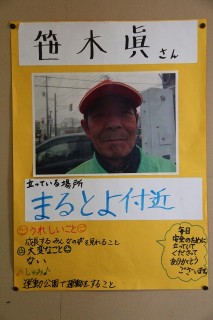 笹木眞さん
立っている場所
まるとよ付近
うれしいこと
成長するみんなの姿を見れること
大変なこと
ない
しゅみ
運動公園で運動をすること
毎日
安全のために
立っていて
くださって
ありがとう
ございます。